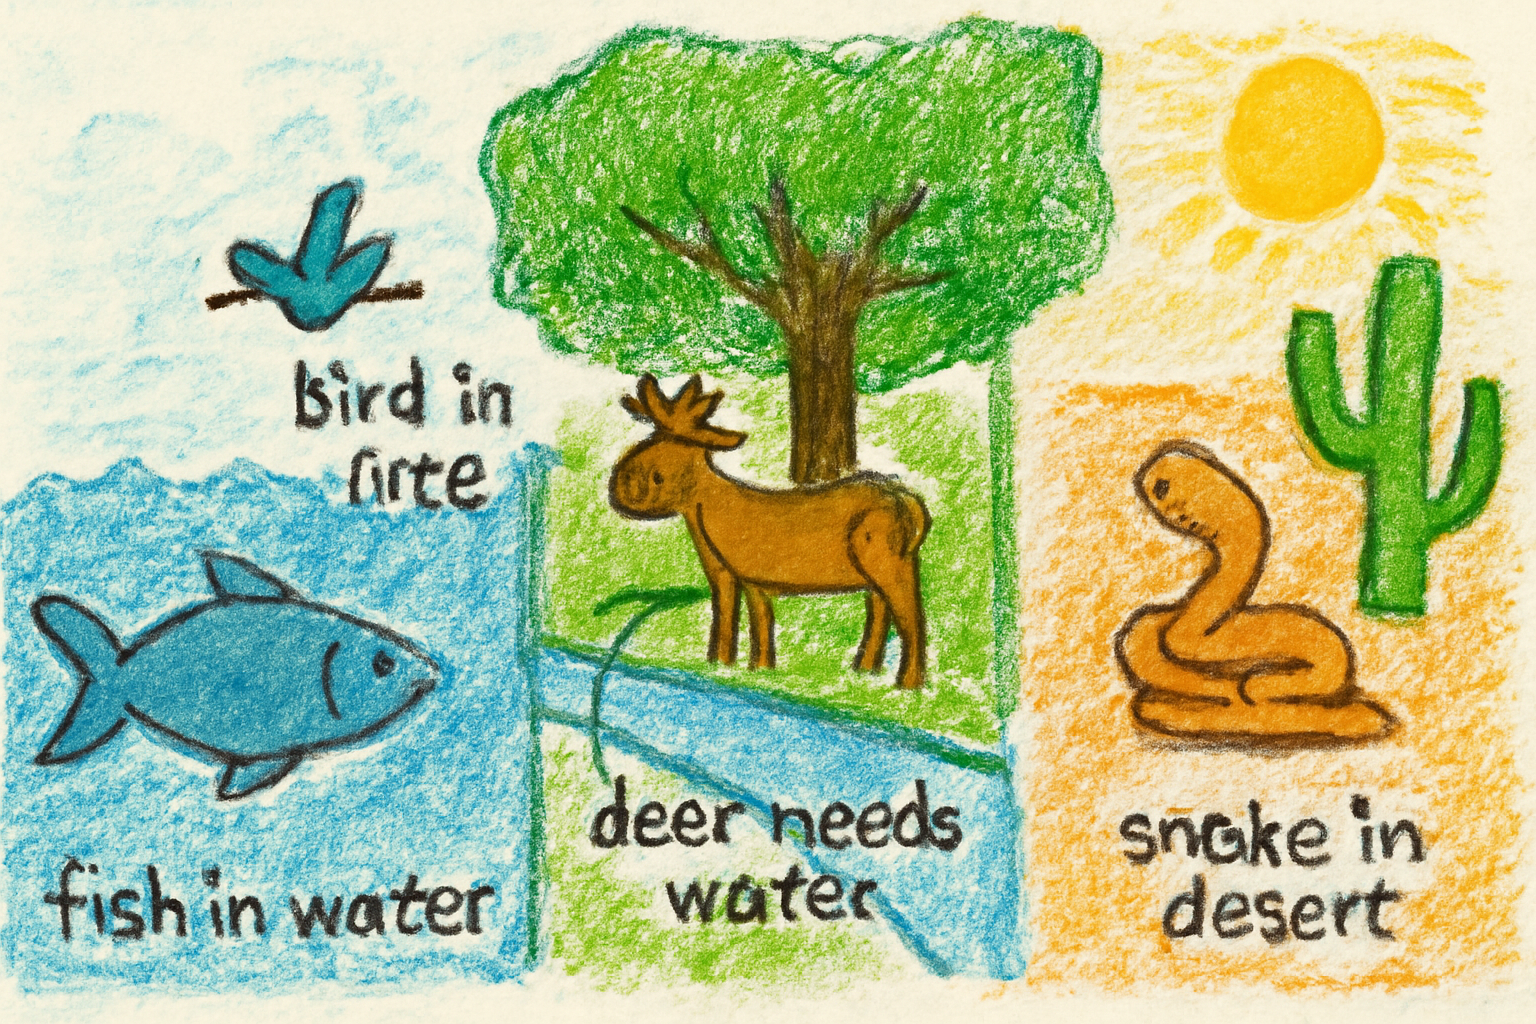 bird in
fish in water
deer needs
water
snake in
desert